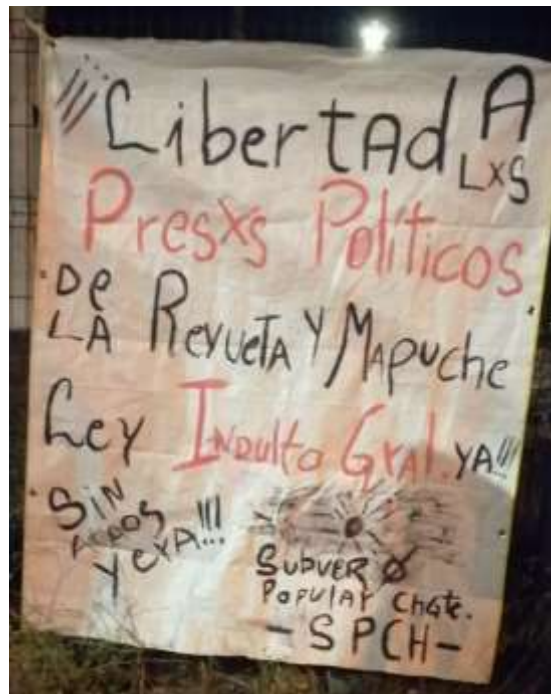 ¡¡¡Libertad A
Lxs
Presxs Políticos
De
LA Revueta Y Mapuche
Ley Indulto Gral. YA!!!
SiN
Y eYA!!!
SubVer Ø
Popular Chate.
- SPCH -